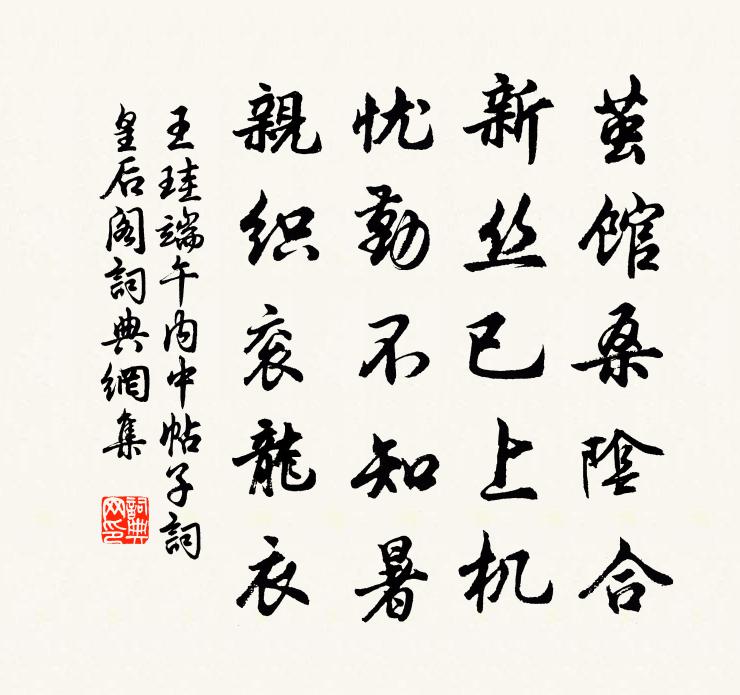 茧馆桑陰合
新丝已上机
忧勤不知暑
親织衮龍衣
王珪端午内中帖子詞
皇后阁詞典網集
詞典网印